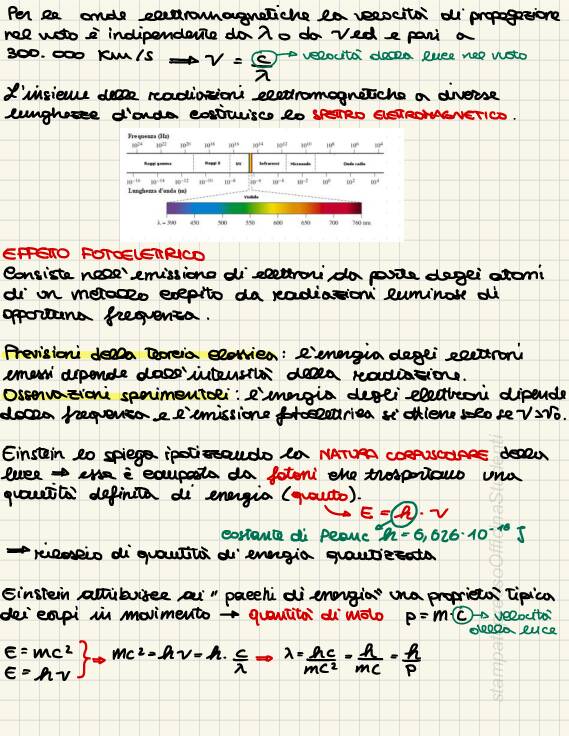 Per le onde elettromagnetiche la velocità di propagazione
nel vuoto è indipendente da λ o da ν ed e pari a
300.000 Km/s ⟹ ν = c/λ → velocità della luce nel vuoto
L'insieme delle radiazioni elettromagnetiche a diverse
lunghezze d'onda costituisce lo SPETTRO ELETTROMAGNETICO.
Frequenza (Hz)
10²⁴ 10²² 10²⁰ 10¹⁸ 10¹⁶ 10¹⁴ 10¹² 10¹⁰ 10⁸ 10⁶ 10⁴
Raggi gamma Raggi X UV Infrarossi Microonde Onde radio
10⁻¹⁶ 10⁻¹⁴ 10⁻¹² 10⁻¹⁰ 10⁻⁸ 10⁻⁶ 10⁻⁴ 10⁻² 10⁰ 10² 10⁴
Lunghezza d'onda (m)
Visibile
λ = 390 450 500 550 600 650 700 760 nm
EFFETTO FOTOELETTRICO
Consiste nell'emissione di elettroni da parte degli atomi
di un metallo colpito da radiazioni luminose di
opportuna frequenza.
Previsioni della teoria classica: l'energia degli elettroni
emessi dipende dall'intensità della radiazione.
Osservazioni sperimentali: l'energia degli elettroni dipende
dalla frequenza e l'emissione fotoelettrica si ottiene solo se ν>ν₀.
Einstein lo spiega ipotizzando la NATURA CORPUSCOLARE della
luce ⇒ essa è composta da fotoni che trasportano una
quantità definita di energia (quanto).
→ E = h · ν
costante di Planc h = 6,626·10⁻¹⁸ J
⟹ rilascio di quantità di energia quantizzata
Einstein attribuisce ai "pacchi di energia" una proprietà tipica
dei corpi in movimento → quantità di moto p = m·c → velocità
della luce
E = mc²
E = hν } ⇒ mc² = hν = h· c/λ ⇒ λ = hc/mc² = h/mc = h/p